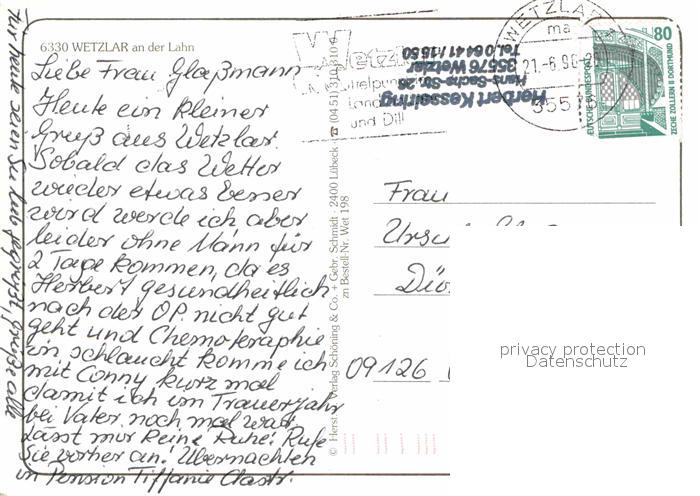 6330 WETZLAR an der Lahn
Liebe Frau Glaßmann
Heute ein kleiner
Gruß aus Wetzlar.
Sobald das Wetter
wieder etwas besser
wird werde ich aber
leider ohne Mann für
2 Tage kommen, da es
Herbert gesundheitlich
nach der OP. nicht gut
geht und Chemoteraphie
ihn schlaucht komme ich
mit Conny kurz mal
damit ich im Trauerjahr
bei Vater noch mal war.
Lässt mir keine Ruhe! Rufe
Sie vorher an! Übernachten
in Pension Tiffanie
Für heute seien Sie lieb gegrüßt, Grüße alle
© Herst. u. Verlag Schöning & Co. + Gebr. Schmidt · 2400 Lübeck · ☎ (04 51) 310 310
zn Bestell-Nr. Wet 198
Herbert Kessalring
Hans-Sachs-Str. 26
35576 Wetzlar
Tel. 0 64 41 / 15 50
und Dill
WETZLAR
ma
21.-6.96
355
80
DEUTSCHE BUNDESPOST
ZECHE ZOLLERN II DORTMUND
Frau
09126
privacy protection
Datenschutz